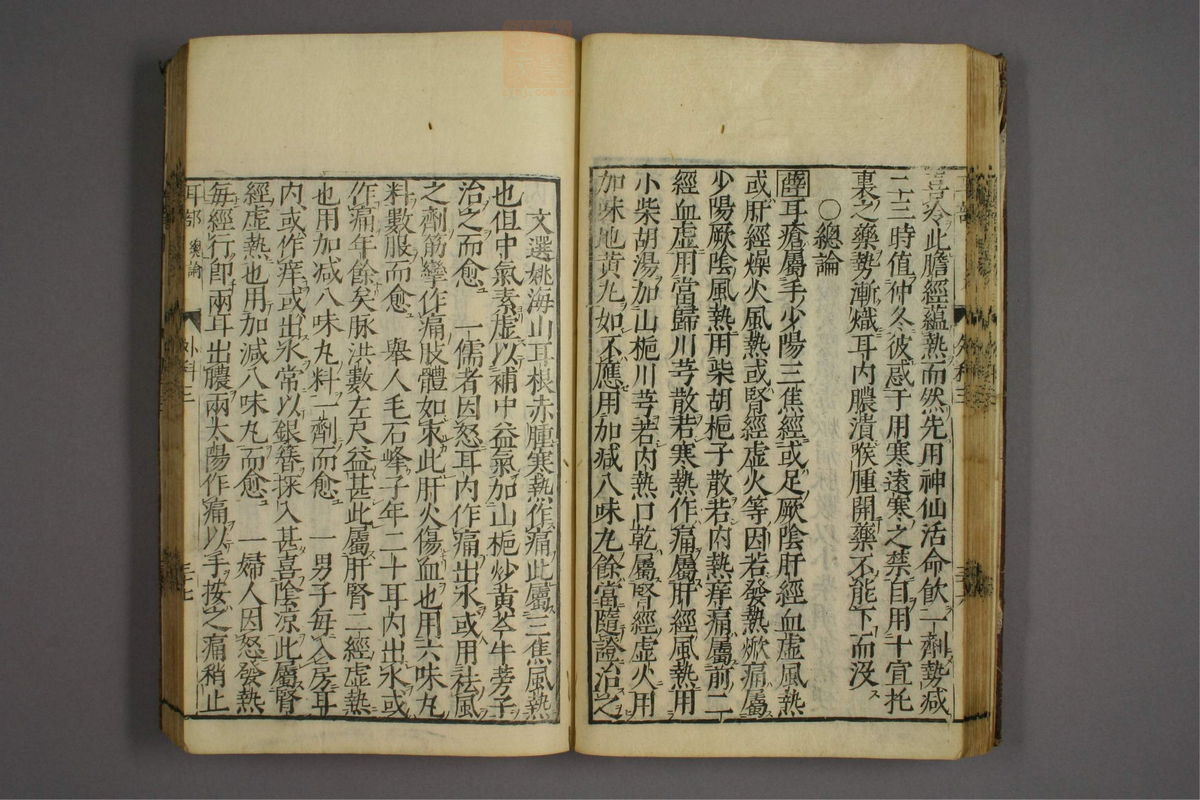 喜冷此膽經蘊熱而然先用神仙活命飲一劑勢減
二三時值仲冬彼惑于用寒遠寒之禁自用十宣托
裏之藥勢漸熾耳內膿潰喉腫開藥不能下而沒
○總論
薛耳瘡屬手少陽三焦經或足厥陰肝經血虛風熱
或肝經燥火風熱或腎經虛火等因若發熱焮痛屬
少陽厥陰風熱用柴胡梔子散若內熱痒痛屬前二
經血虛用當歸川芎散若寒熱作痛屬肝經風熱用
小柴胡湯加山梔川芎若內熱口乾屬腎經虛火用
加味地黃丸如不應用加減八味丸餘當隨證治之
文選姚海山耳根赤腫寒熱作痛此屬三焦風熱
也但中氣素虛以補中益氣加山梔炒黃芩牛蒡子
治之而愈 一儒者因怒耳內作痛出水或用祛風
之劑筋攣作痛肢體如束此肝火傷血也用六味丸
料數服而愈 舉人毛石峰子年二十耳內出水或
作痛年餘矣脉洪數左尺益甚此屬肝腎二經虛熱
也用加減八味丸料一劑而愈 一男子每入房耳
內或作痒或出水常以銀簪探入甚喜陰涼此屬腎
經虛熱也用加減八味丸而愈 一婦人因怒發熱
每經行即兩耳出膿兩太陽作痛以手按之痛稍止
耳部 總論 外科三